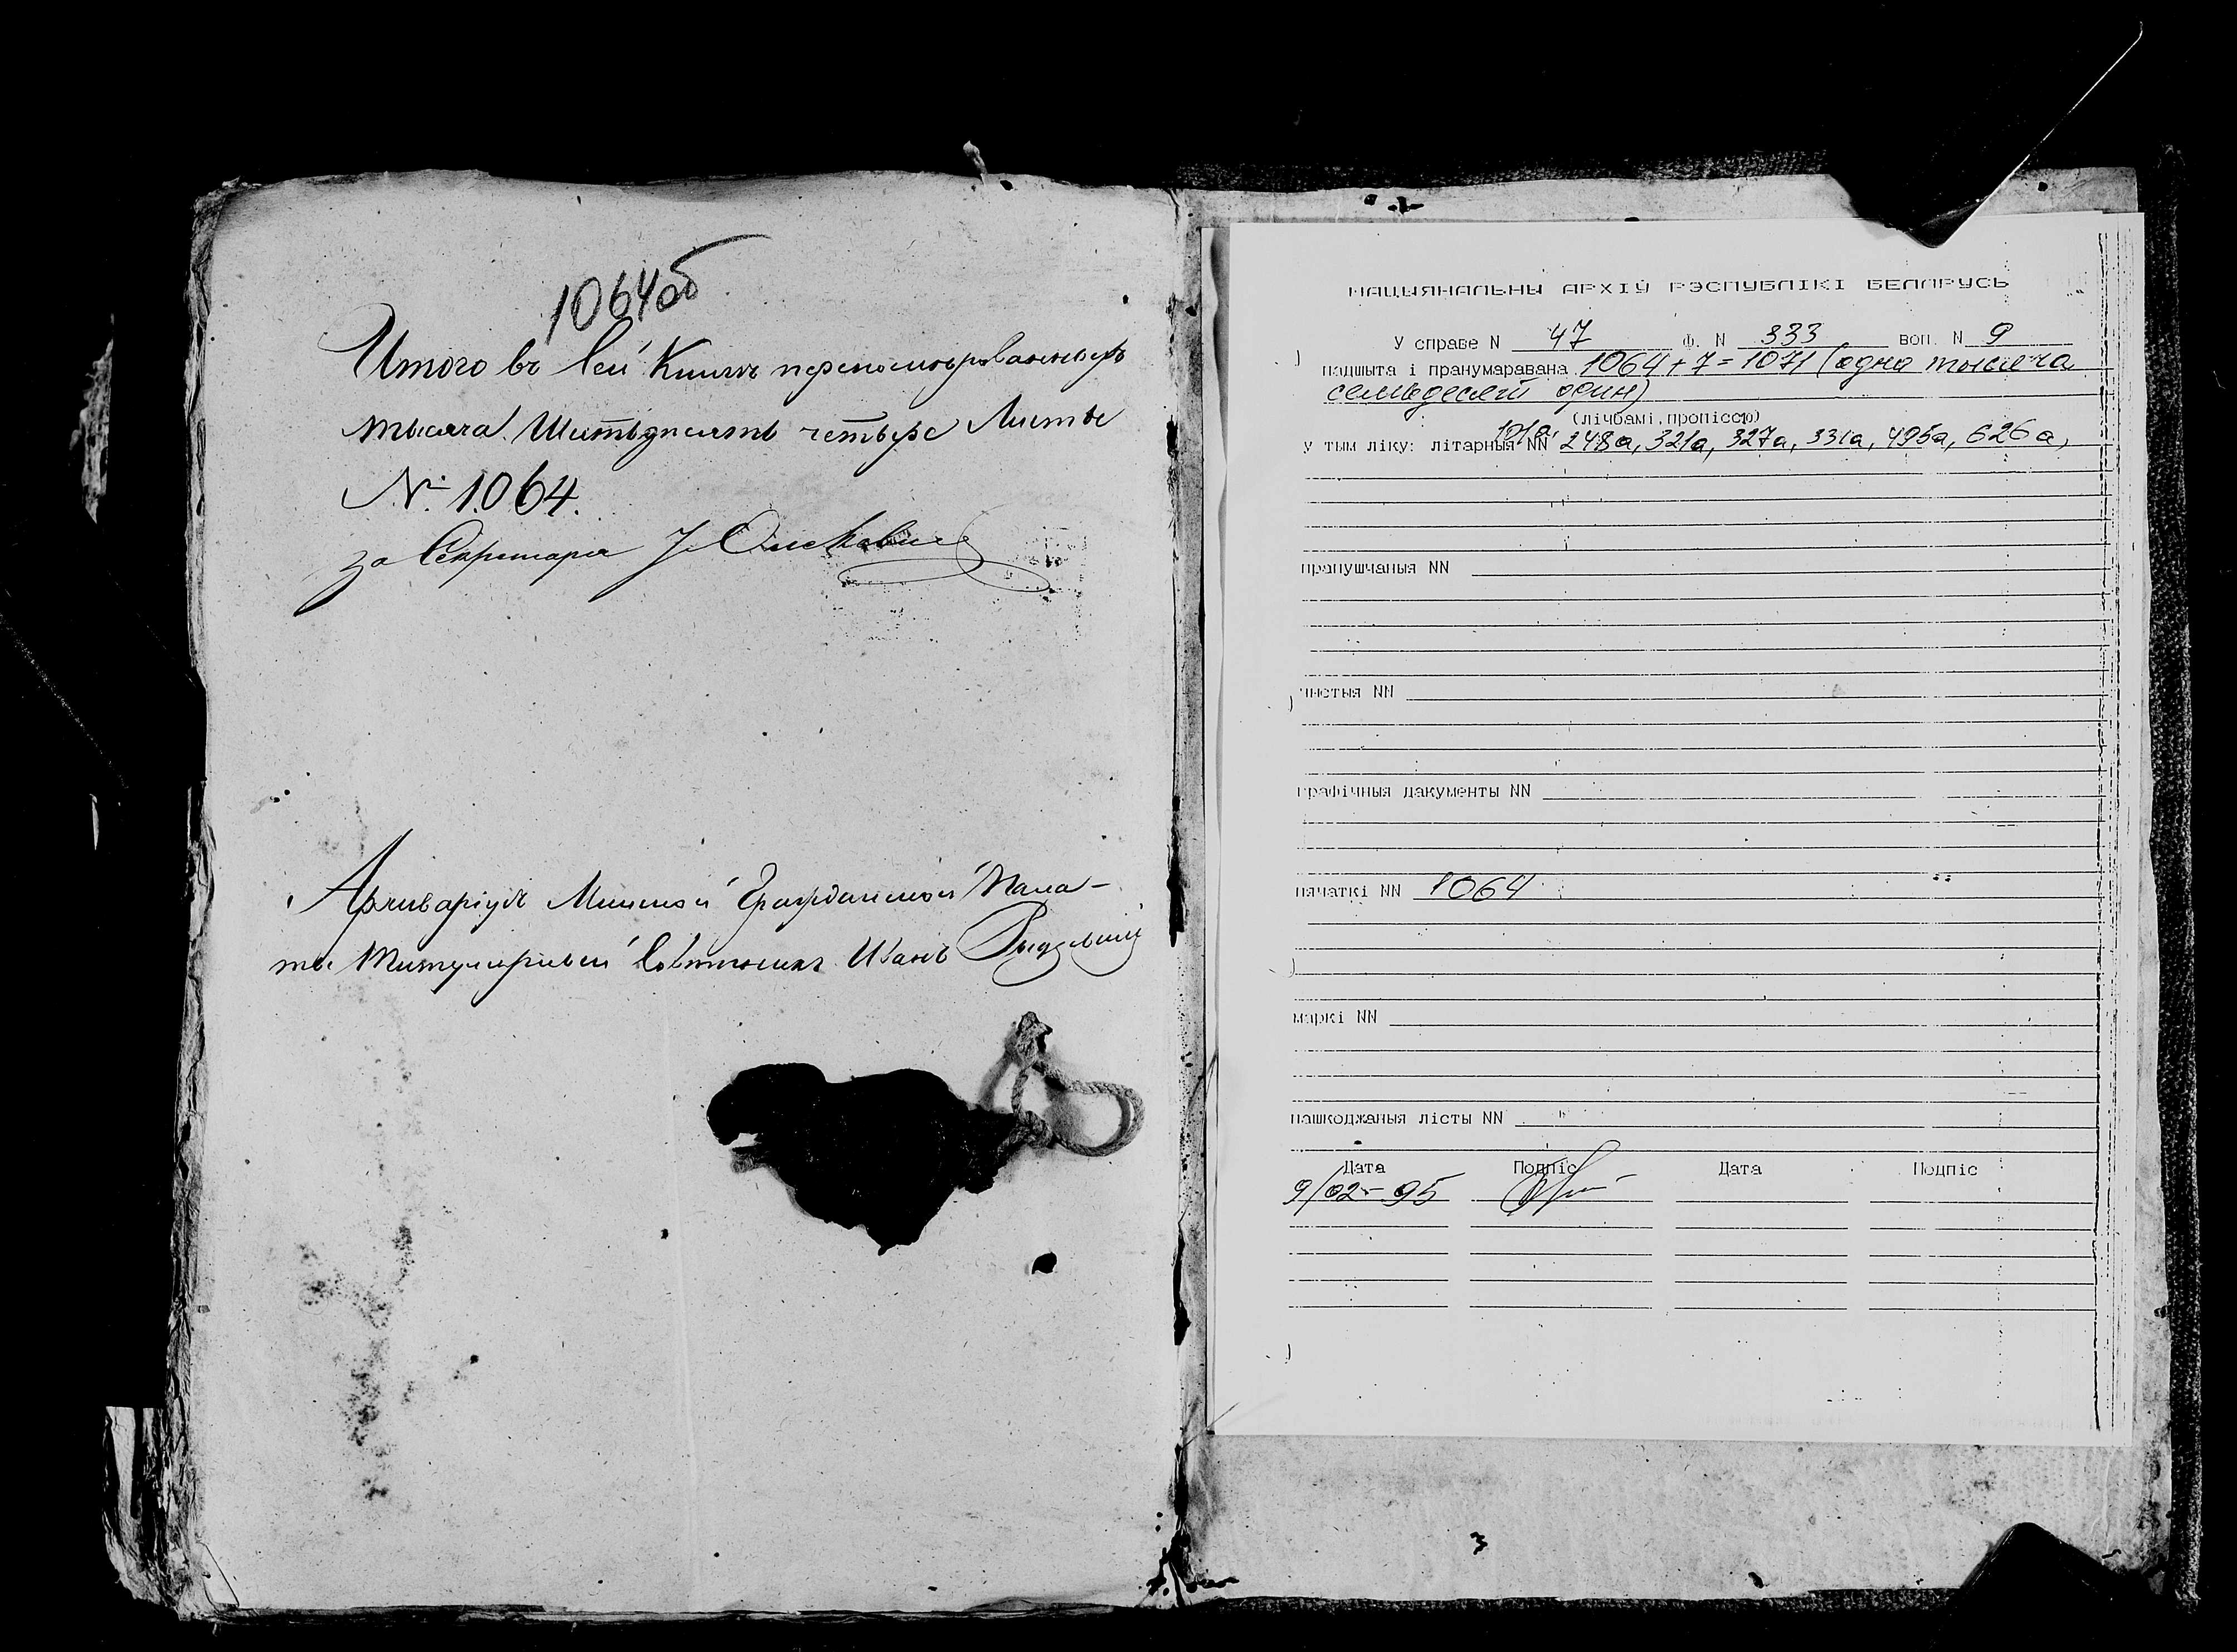 1064об
Итого въ сей Книгѣ перенумерованныхъ
тысяча Шестьдесятъ четыре Листы
№ 1064.
За Секретаря
Архиваріусъ Минской Гражданской Пала-
ты Титулярный Совѣтникъ Иванъ
НАЦЫЯНАЛЬНЫ АРХІЎ РЭСПУБЛІКІ БЕЛАРУСЬ
У справе N 47 Ф. N 333 воп. N 9
падшыта і пранумаравана 1064+7=1071 (одна тысяча
семьдесят один)
(лічбамі, пропіссю)
у тым ліку: літарныя NN 101а, 248а, 321а, 327а, 331а, 495а, 626а,
прапушчаныя NN
чыстыя NN
графічныя дакументы NN
пячаткі NN 1064
маркі NN
пашкоджаныя лісты NN
Дата Подпіс Дата Подпіс
9/02-95